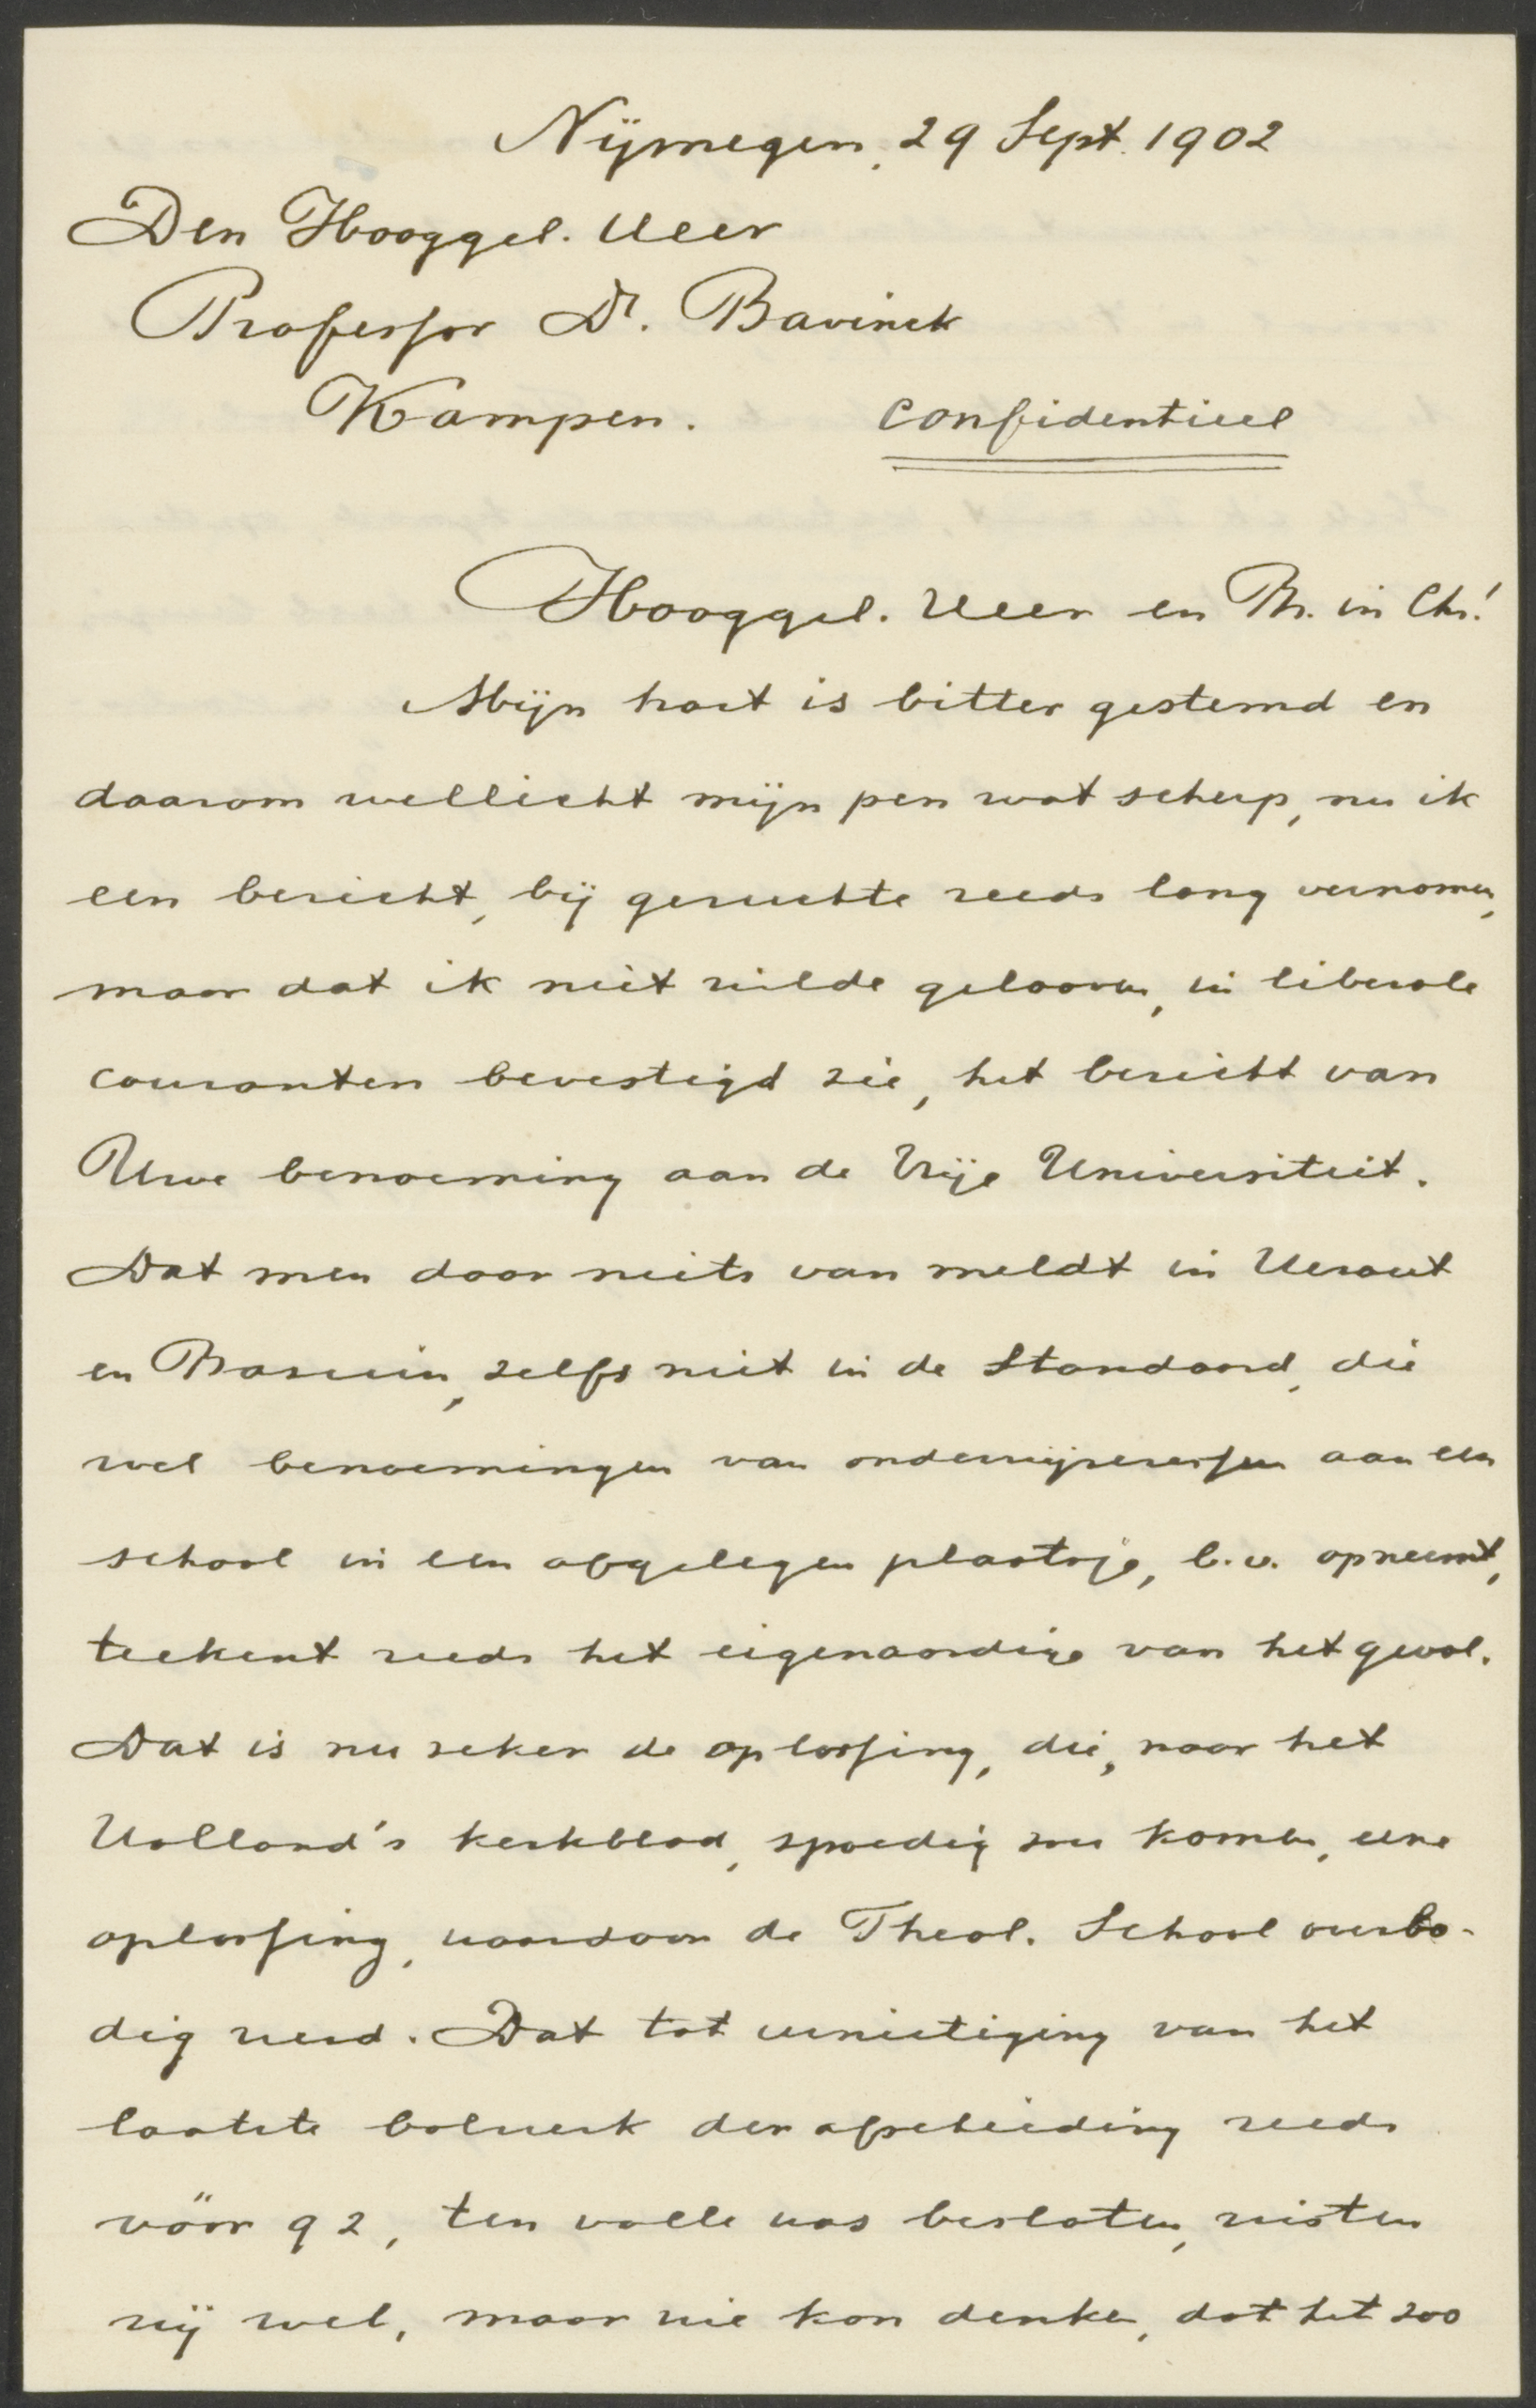 Nijmegen, 29 Sept. 1902
Den Hooggel. Heer
Professor Dr. Bavinck
Kampen. confidentieel
Hooggel. Heer en Br. in Chr!
Mijn hart is bitter gestemd en
daarom wellicht mijn pen wat scherp, nu ik
een bericht, bij geruchte reeds lang vernomen,
maar dat ik niet wilde gelooven, in liberale
couranten bevestigd zie, het bericht van
Uwe benoeming aan de Vrije Universiteit.
Dat men daar niets van meldt in Heraut
en Bazuin, zelfs niet in de Standaard, die
wel benoemingen van onderwijzeressen aan een
school in een afgelegen plaatsje, b.v. opneemt,
teekent reeds het eigenaardige van het geval.
Dat is nu zeker de oplossing, die, naar het
Holland's kerkblad, spoedig zou komen, eene
oplossing, waardoor de Theol. School overbo-
dig werd. Dat tot vernietiging van het
laatste bolwerk der afscheiding reeds
vóór 92, ten volle was besloten, wisten
wij wel, maar wie kon denken, dat het zoo